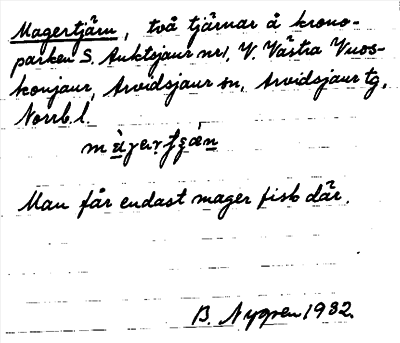 Magertjärn, två tjärnar å krono-
parken S. Auktsjaur nr 1, V. Västra Vuos-
konjaur, Arvidsjaur sn, Arvidsjaur tg,
Norrb. l.
Man får endast mager fisk där.
B. Nygren 1932.